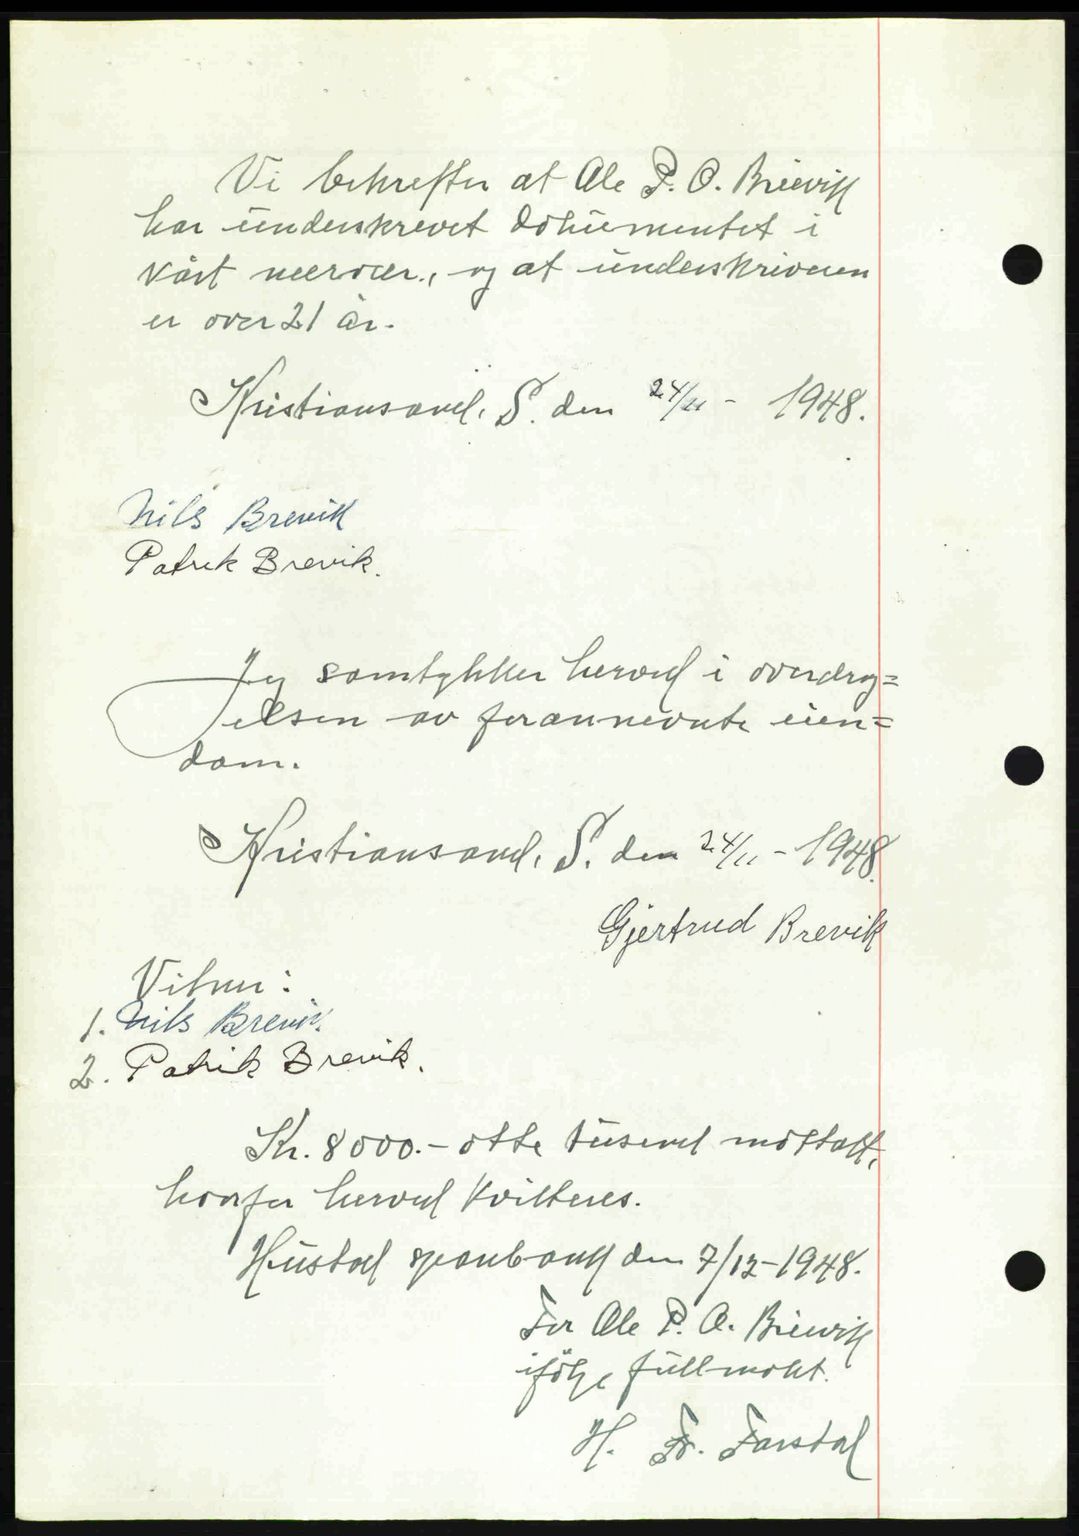 Vi bekrefter at Ole P. O. Brevik
har underskrevet dokumentet i
vårt nærvær, og at underskriveren
er over 21 år.
Kristiansand. S. den 24/11 - 1948.
Nils Brevik
Patrik Brevik.
Jeg samtykker herved i overdrag=
elsen av forannevnte eien=
dom.
Kristiansand. S. den 24/11 - 1948.
Gjertrud Brevik
Vitner:
1. Nils Brevik.
2. Patrik Brevik.
Kr. 8000.- otte tusend mottatt,
hvorfor herved kvitteres.
Hustad sparebank den 7/12-1948.
For Ole P. O. Brevik
ifølge fullmakt.
H. Fr. Farstad